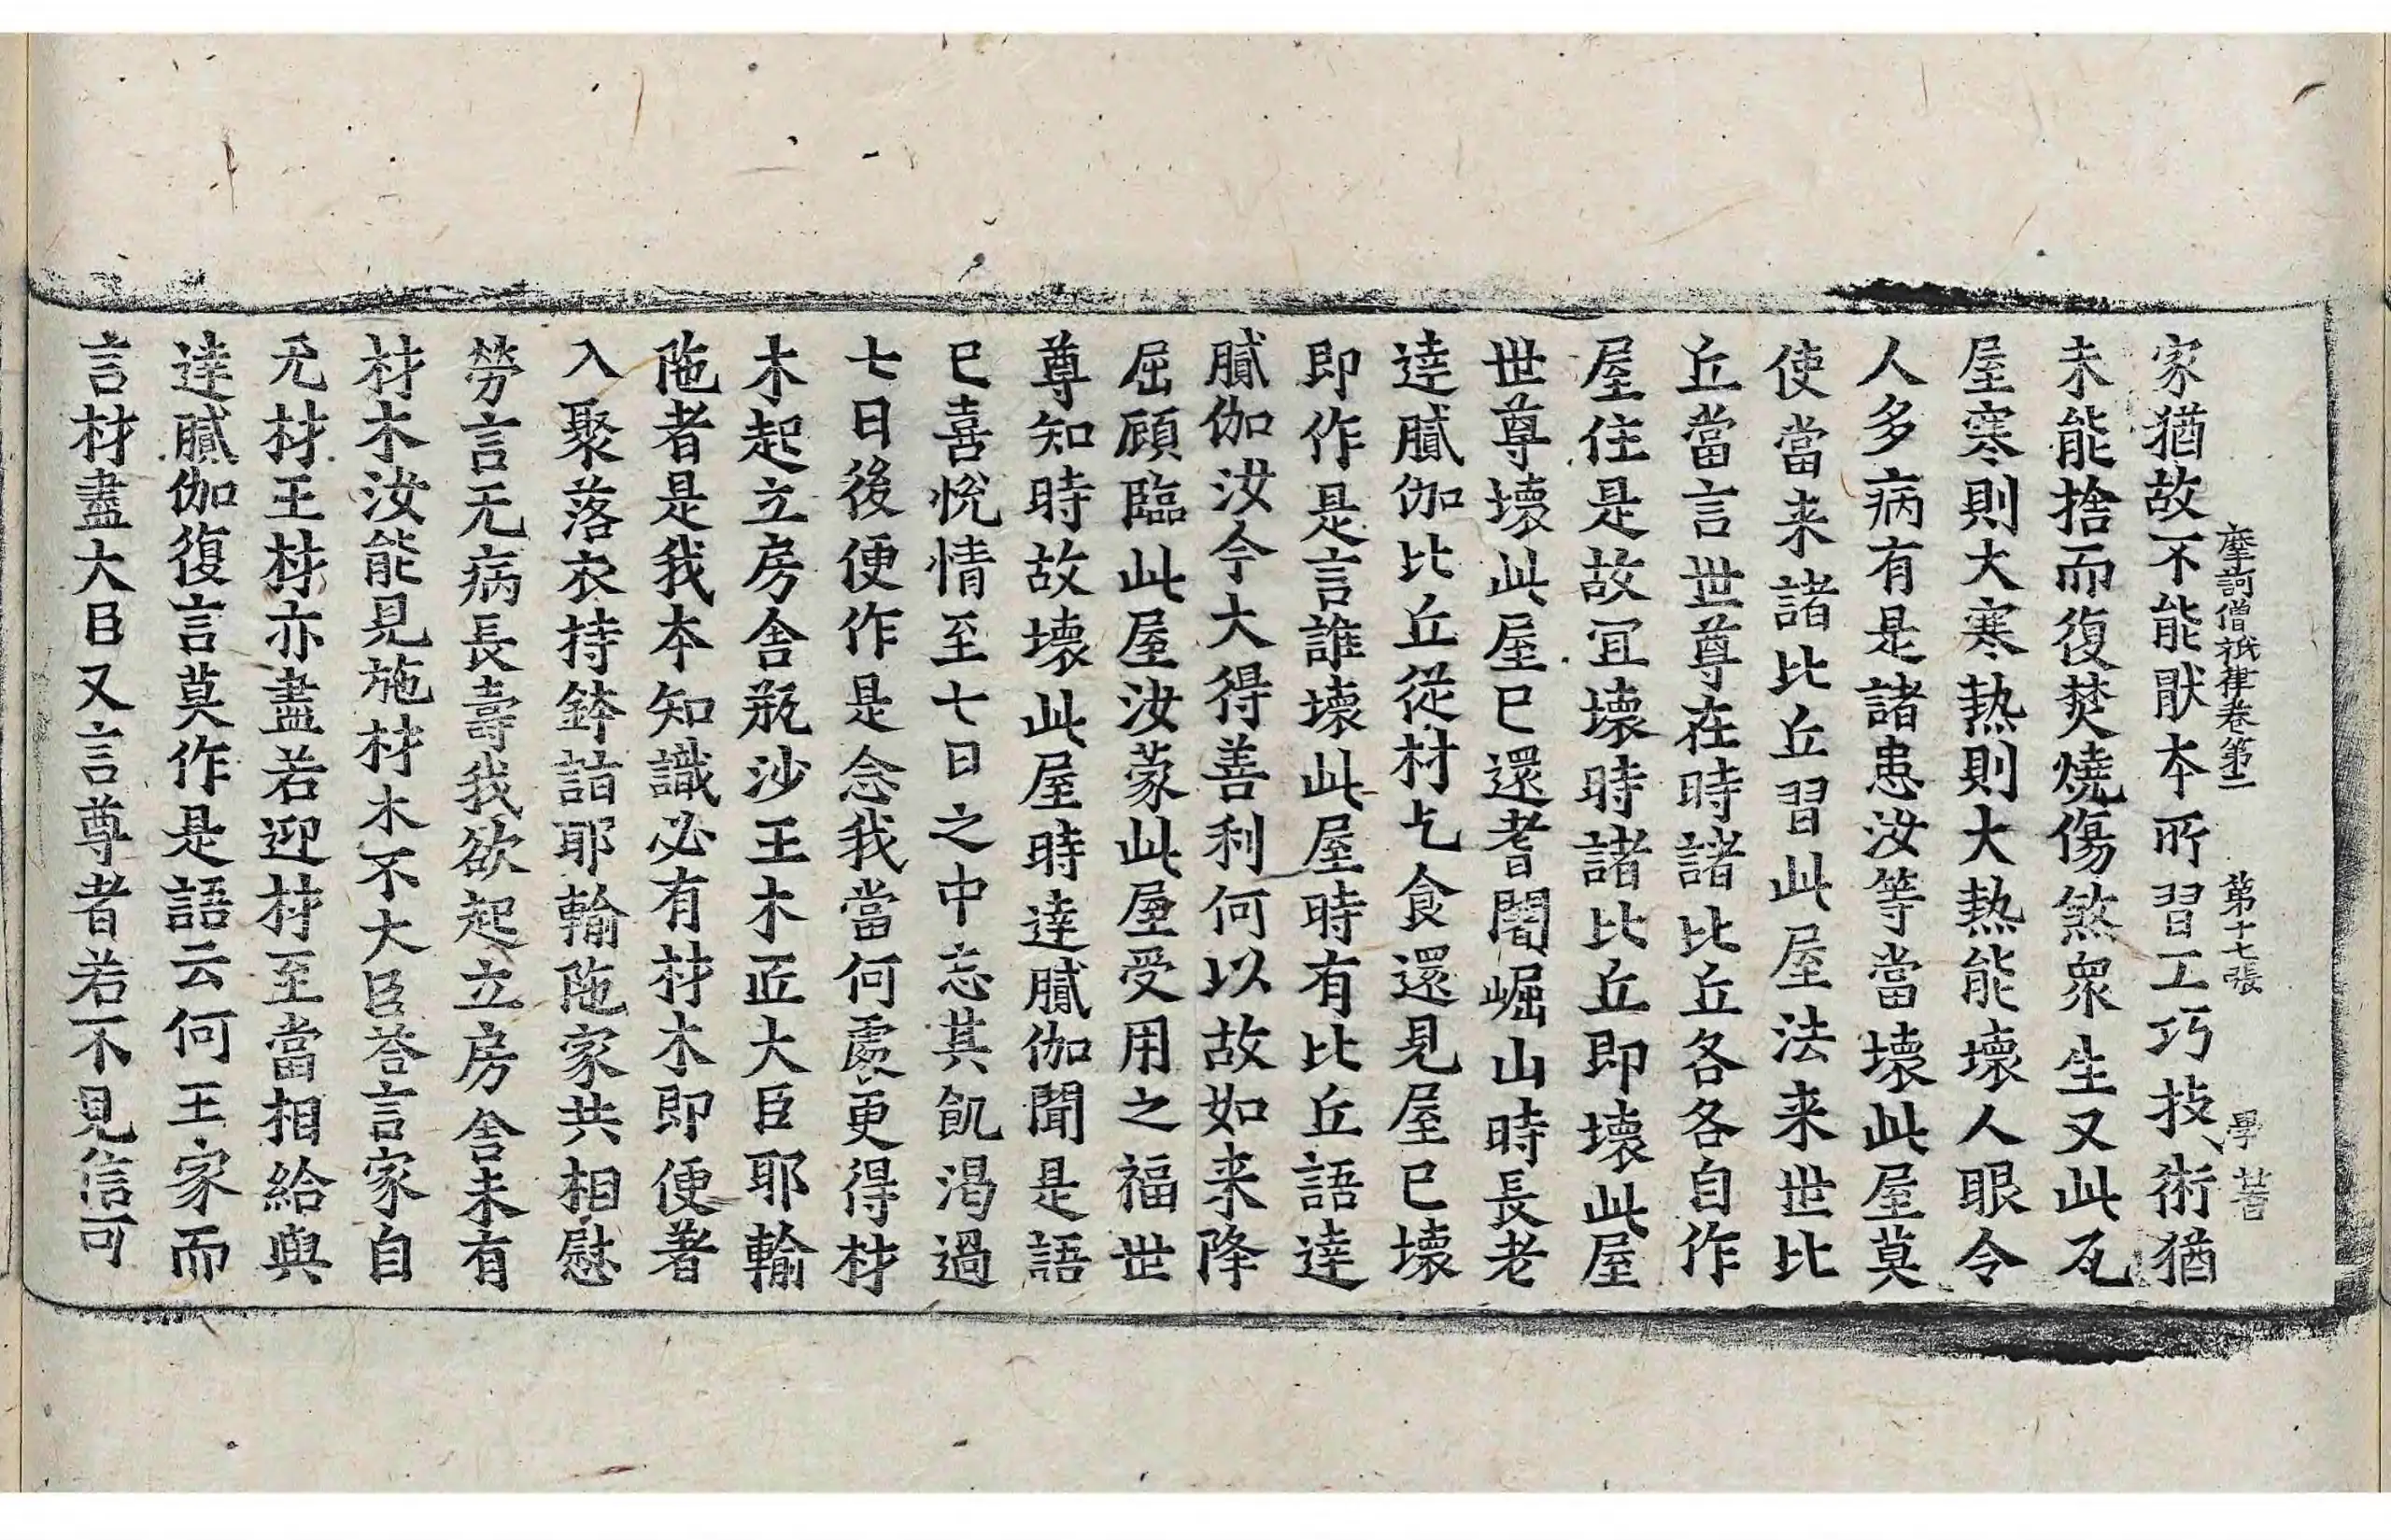 摩訶僧祇律卷第二 第十七張 學 著
家猶故不能猒本所習工巧技術猶
未能捨而復焚燒傷煞衆生又此瓦
屋寒則大寒熱則大熱能壞人眼令
人多病有是諸患汝等當壞此屋莫
使當来諸比丘習此屋法来世比
丘當言世尊在時諸比丘各各自作
屋住是故冝壞時諸比丘即壞此屋
世尊壞此屋已還耆闍崛山時長老
達膩伽比丘從村乞食還見屋已壞
即作是言誰壞此屋時有比丘語達
膩伽汝今大得善利何以故如来降
屈顧臨此屋汝蒙此屋受用之福世
尊知時故壞此屋時達膩伽聞是語
已喜悅情至七日之中忘其飢渴過
七日後便作是念我當何處更得材
木起立房舍瓶沙王木匠大臣耶輸
陁者是我本知識必有材木即便著
入聚落衣持鉢詣耶輸陁家共相慰
勞言无病長壽我欲起立房舍未有
材木汝能見施材木不大臣荅言家自
无材王材亦盡若迎材至當相給與
達膩伽復言莫作是語云何王家而
言材盡大臣又言尊者若不見信可